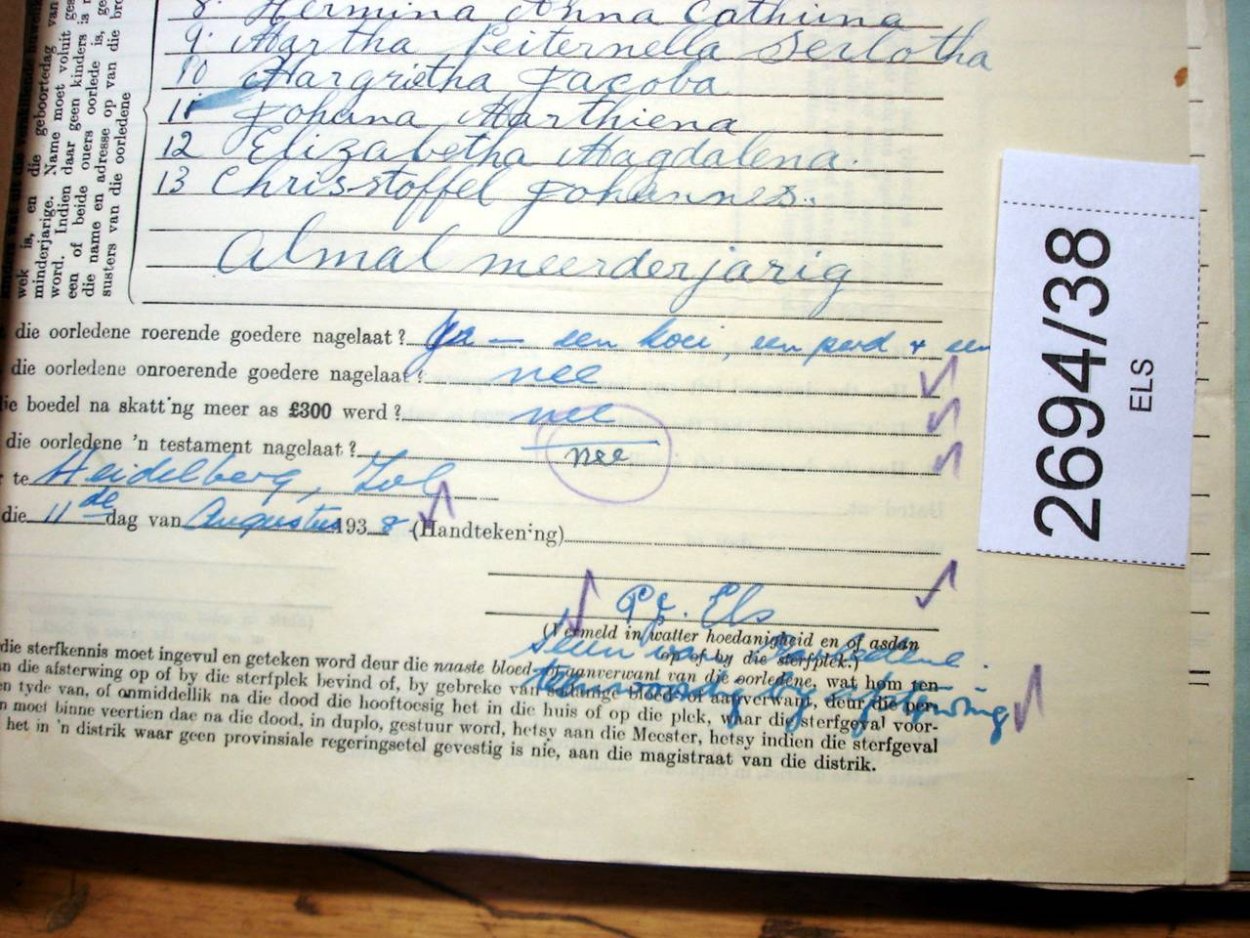 8. Hermina Anna Cathrina
9. Martha Peiternella Serlotha
10 Margrietha Jacoba
11 Johana Marthiena
12 Elizabetha Magdalena.
13 Chris-stoffel Johannes.
Almal meerderjarig
is, en die geboortedag van
minderjarige. Name moet voluit
word. Indien daar geen kinders is
een of beide ouers oorlede is,
die name en adresse op van die
susters van die oorledene
die oorledene roerende goedere nagelaat? Ja — een koei, een perd + een
die oorledene onroerende goedere nagelaat? nee
die boedel na skatt'ng meer as £300 werd? nee
die oorledene 'n testament nagelaat? nee
te Heidelberg, Tvl
die 11de dag van Augustus 1938 (Handteken·ng)
P.J. Els
(Vermeld in watter hoedanigheid en of asdan
op of by die sterfplek.)
seun van oorledene.
teenwoordig by afsterwing
die sterfkennis moet ingevul en geteken word deur die naaste bloed- of aanverwant van die oorledene, wat hom ten
die afsterwing op of by die sterfplek bevind of, by gebreke van sodanige bloed- of aanverwant, deur die per-
en tyde van, of onmiddellik na die dood die hooftoesig het in die huis of op die plek, waar die sterfgeval voor-
moet binne veertien dae na die dood, in duplo, gestuur word, hetsy aan die Meester, hetsy indien die sterfgeval
het in 'n distrik waar geen provinsiale regeringsetel gevestig is nie, aan die magistraat van die distrik.
2694/38
ELS